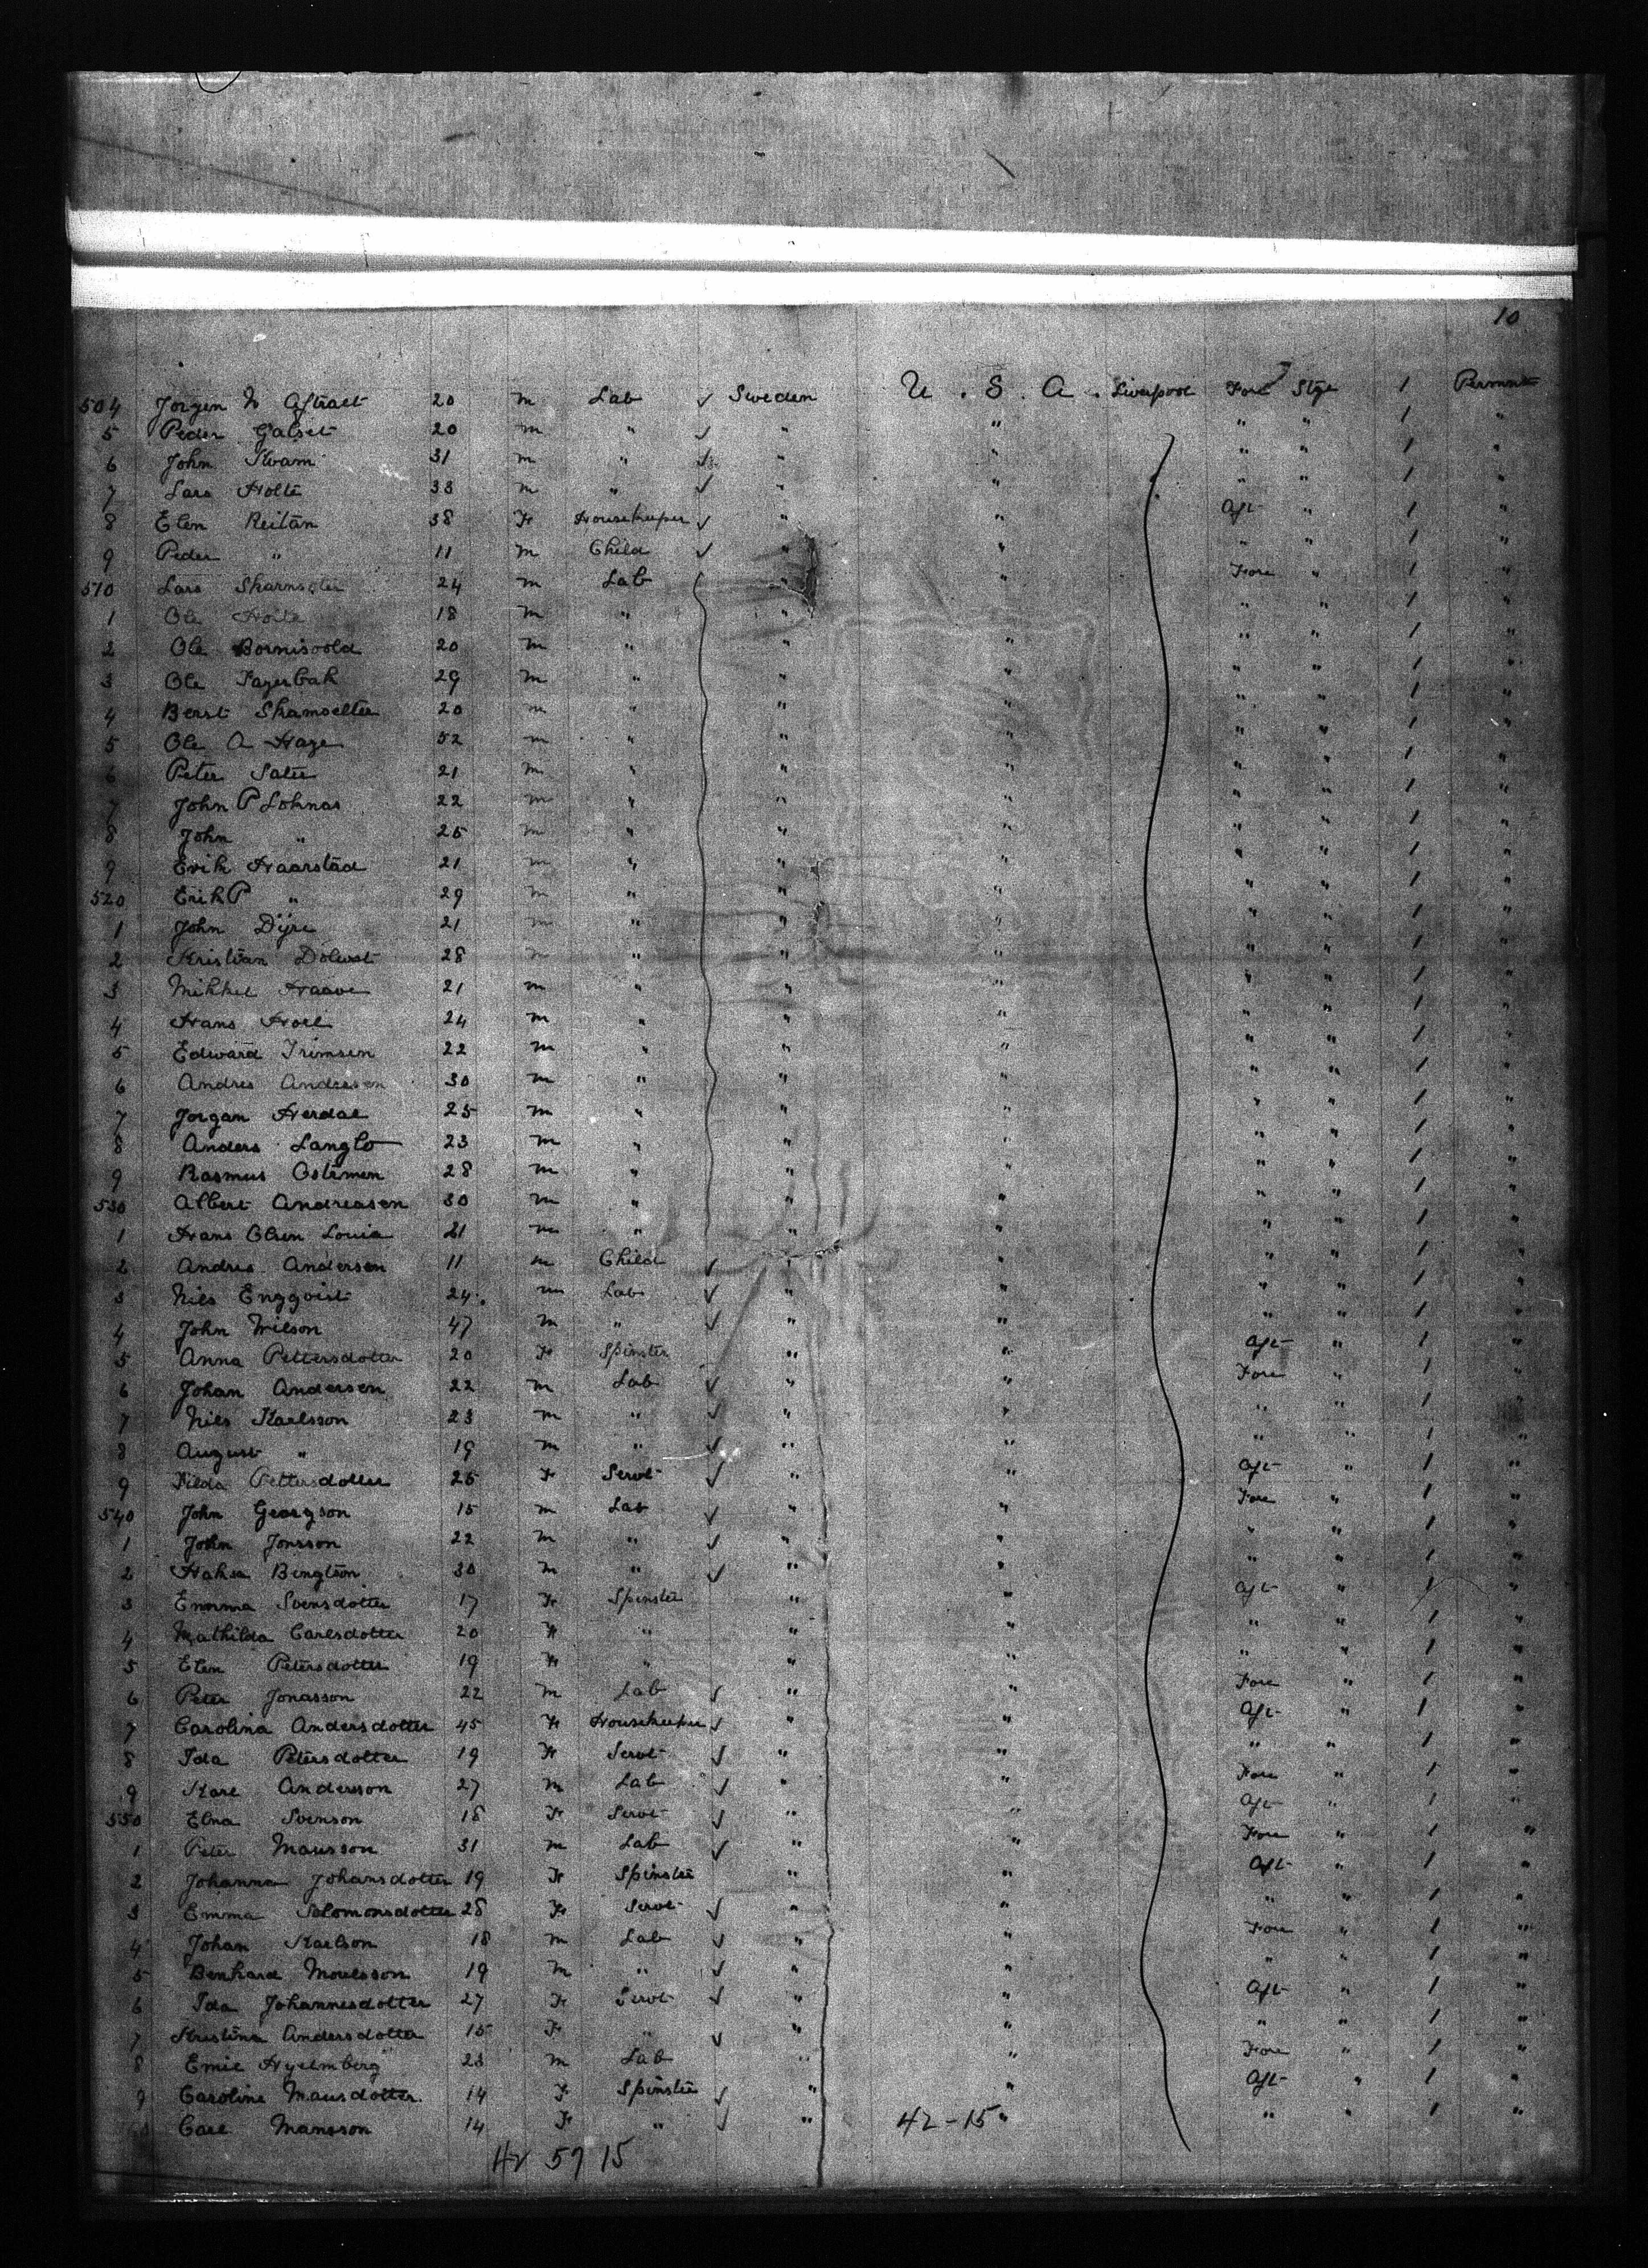 10
504 Jorgen N Aftraet 20 m Lab ✓ Sweden U. S. A. Liverpool Fore Stge 1 Permnt
5 Peder Galset 20 m " ✓ " " " " 1 "
6 John Kvam 31 m " ✓ " " " " 1 "
7 Lars Holte 33 m " ✓ " " " " 1 "
8 Elen Reitan 38 F Housekeeper ✓ " " Aft " 1 "
9 Peder " 11 m Child ✓ " " " " 1 "
510 Lars 24 m Lab " " Fore " 1 "
1 Ole 18 m " " " " 1 "
2 Ole 20 m " " " " " 1 "
3 Ole Fagerbak 29 m " " " " " 1 "
4 Berst 20 m " " " " " 1 "
5 Ole A Hage 52 m " " " " " 1 "
6 Peter Sater 21 m " " " " " 1 "
7 John P Lohnas 22 m " " " " " 1 "
8 John " 25 m " " " " " 1 "
9 Erik Haarstad 21 m " " " " " 1 "
520 Erik P " 29 m " " " " " 1 "
1 John Dyre 21 m " " " " " 1 "
2 Kristian 28 m " " " " " 1 "
3 Mikkel Haave 21 m " " " " " 1 "
4 Hans Hoel 24 m " " " " " 1 "
5 Edward Irimsen 22 m " " " " " 1 "
6 Andres Andersen 30 m " " " " " 1 "
7 Jorgan Herdal 25 m " " " " " 1 "
8 Anders Langlo 23 m " " " " " 1 "
9 Rasmus Ostemen 28 m " " " " " 1 "
530 Albert Andreasen 30 m " " " " " 1 "
1 Hans Olsen Louia 21 m " " " " " 1 "
2 Andres Andersen 11 m Child ✓ " " " " 1 "
3 Nils Engqvist 24 m Lab ✓ " " " " 1 "
4 John Wilson 47 m " ✓ " " " " 1 "
5 Anna Pettersdotter 20 F Spinster " " Aft " 1 "
6 Johan Andersen 22 m Lab ✓ " " Fore " 1 "
7 Nils Karlsson 23 m " ✓ " " " " 1 "
8 August " 19 m " ✓ " " " " 1 "
9 Hilda Pettersdotter 25 F Servt ✓ " " Aft " 1 "
540 John Georgson 15 m Lab ✓ " " Fore " 1 "
1 John Jonsson 22 m " ✓ " " " " 1 "
2 Bengtson 30 m " ✓ " " " " 1 "
3 Emma Svensdotter 17 F Spinster " " Aft " 1 "
4 Mathilda Carlsdotter 20 F " " " " " 1 "
5 Elen Petersdotter 19 F " " " " " 1 "
6 Peter Jonasson 22 m Lab ✓ " " Fore " 1 "
7 Carolina Andersdotter 45 F Housekeeper ✓ " " Aft " 1 "
8 Ida Petersdotter 19 F Servt ✓ " " " " 1 "
9 Karl Andersson 27 m Lab ✓ " " Fore " 1 "
550 Elna Svenson 18 F Servt ✓ " " Aft " 1 "
1 Peter Mansson 31 m Lab ✓ " " Fore " 1 "
2 Johanna Johansdotter 19 F Spinster " " Aft " 1 "
3 Emma Salomonsdotter 28 F Servt ✓ " " " " 1 "
4 Johan Karlson 18 m Lab ✓ " " Fore " 1 "
5 Benhard 19 m " ✓ " " " " 1 "
6 Ida Johannesdotter 27 F Servt ✓ " " Aft " 1 "
7 Kristina Andersdotter 15 F " ✓ " " " " 1 "
8 Emil Hyelmberg 23 m Lab " " Fore " 1 "
9 Caroline Mansdotter 14 F Spinster ✓ " " Aft " 1 "
Carl Mansson 14 F " ✓ " " " " 1 "
42-15
59 15